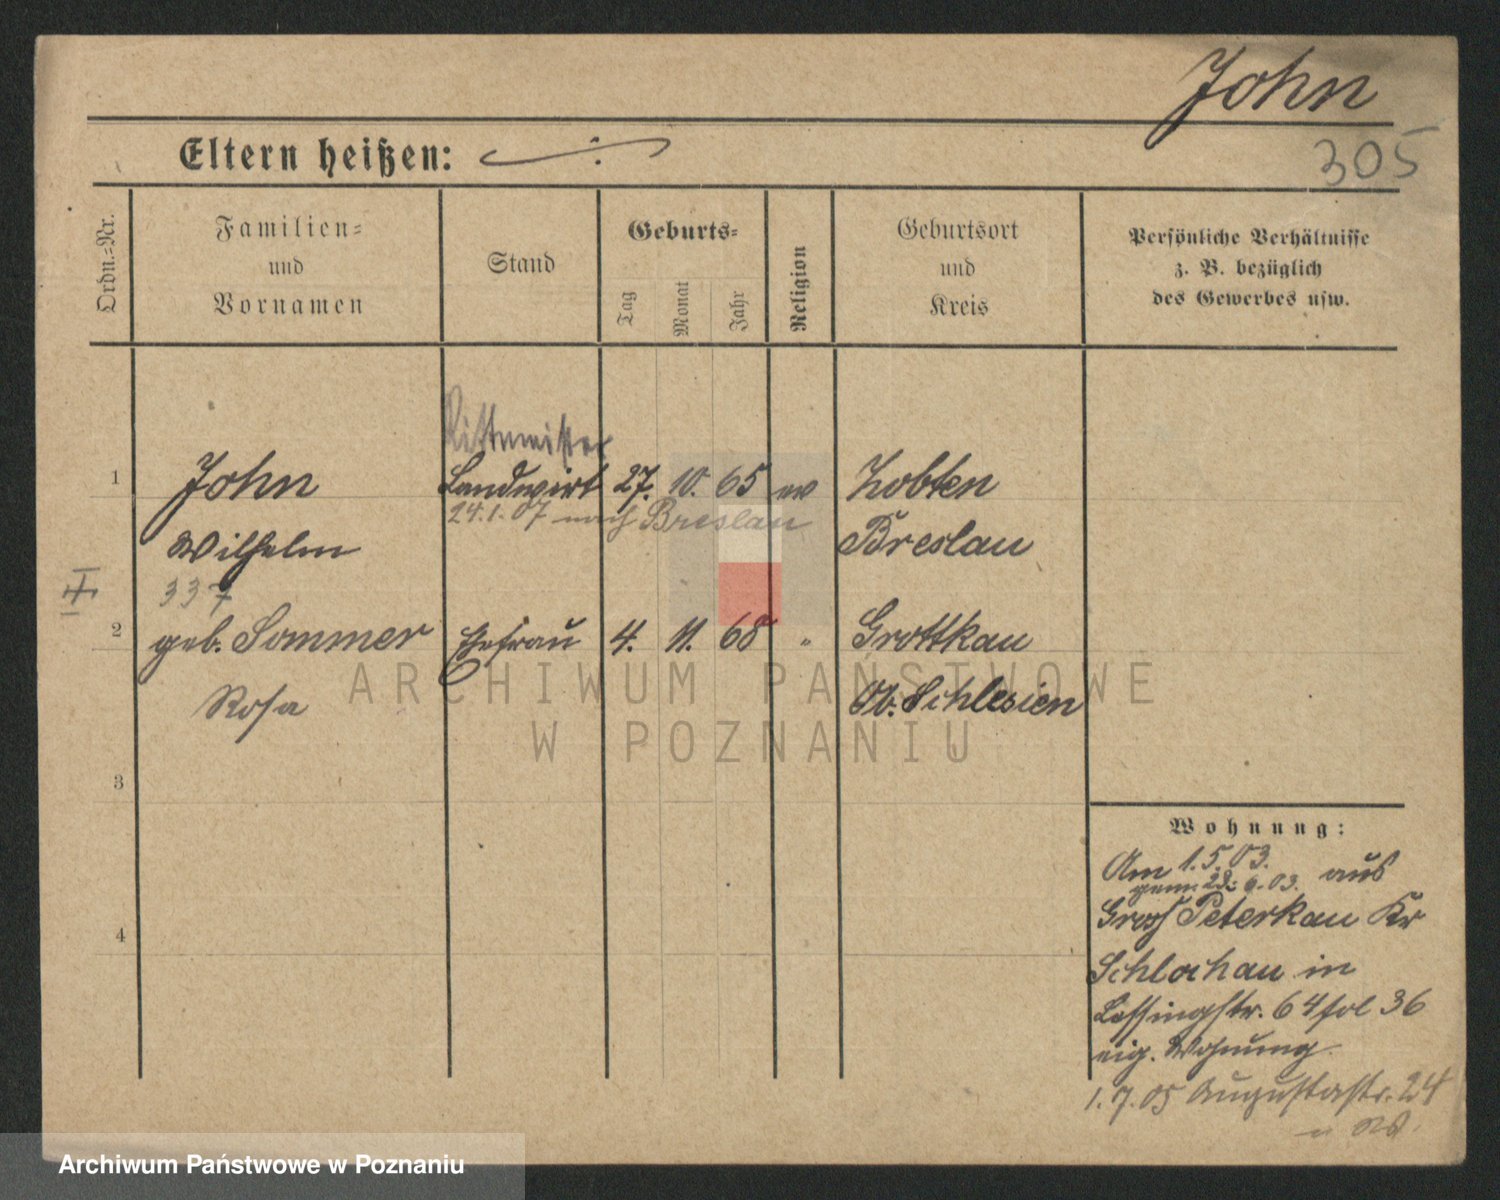 John
305
Eltern heißen:
Ordn.-Nr.
Familien- und Vornamen
Stand
Geburts-
Tag
Monat
Jahr
Religion
Geburtsort und Kreis
Persönliche Verhältnisse
z. B. bezüglich
des Gewerbes usw.
Rittmeister
1 John Landwirt 27. 10. 65 ev Zobten
24.1.07 nach Breslau
Wilhelm Breslau
II
337
2 geb. Sommer Ehefrau 4. 11. 68 " Grottkau
Rosa Ob. Schlesien
3
4
Wohnung:
Am 1.5.03. aus
gem. 22. 6. 03.
Gross Peterkau Kr
Schlochau in
Lessingstr. 64 fol 36
eig. Wohnung
1.7.05 Augustastr. 24
ARCHIWUM PAŃSTWOWE
W POZNANIU
Archiwum Państwowe w Poznaniu